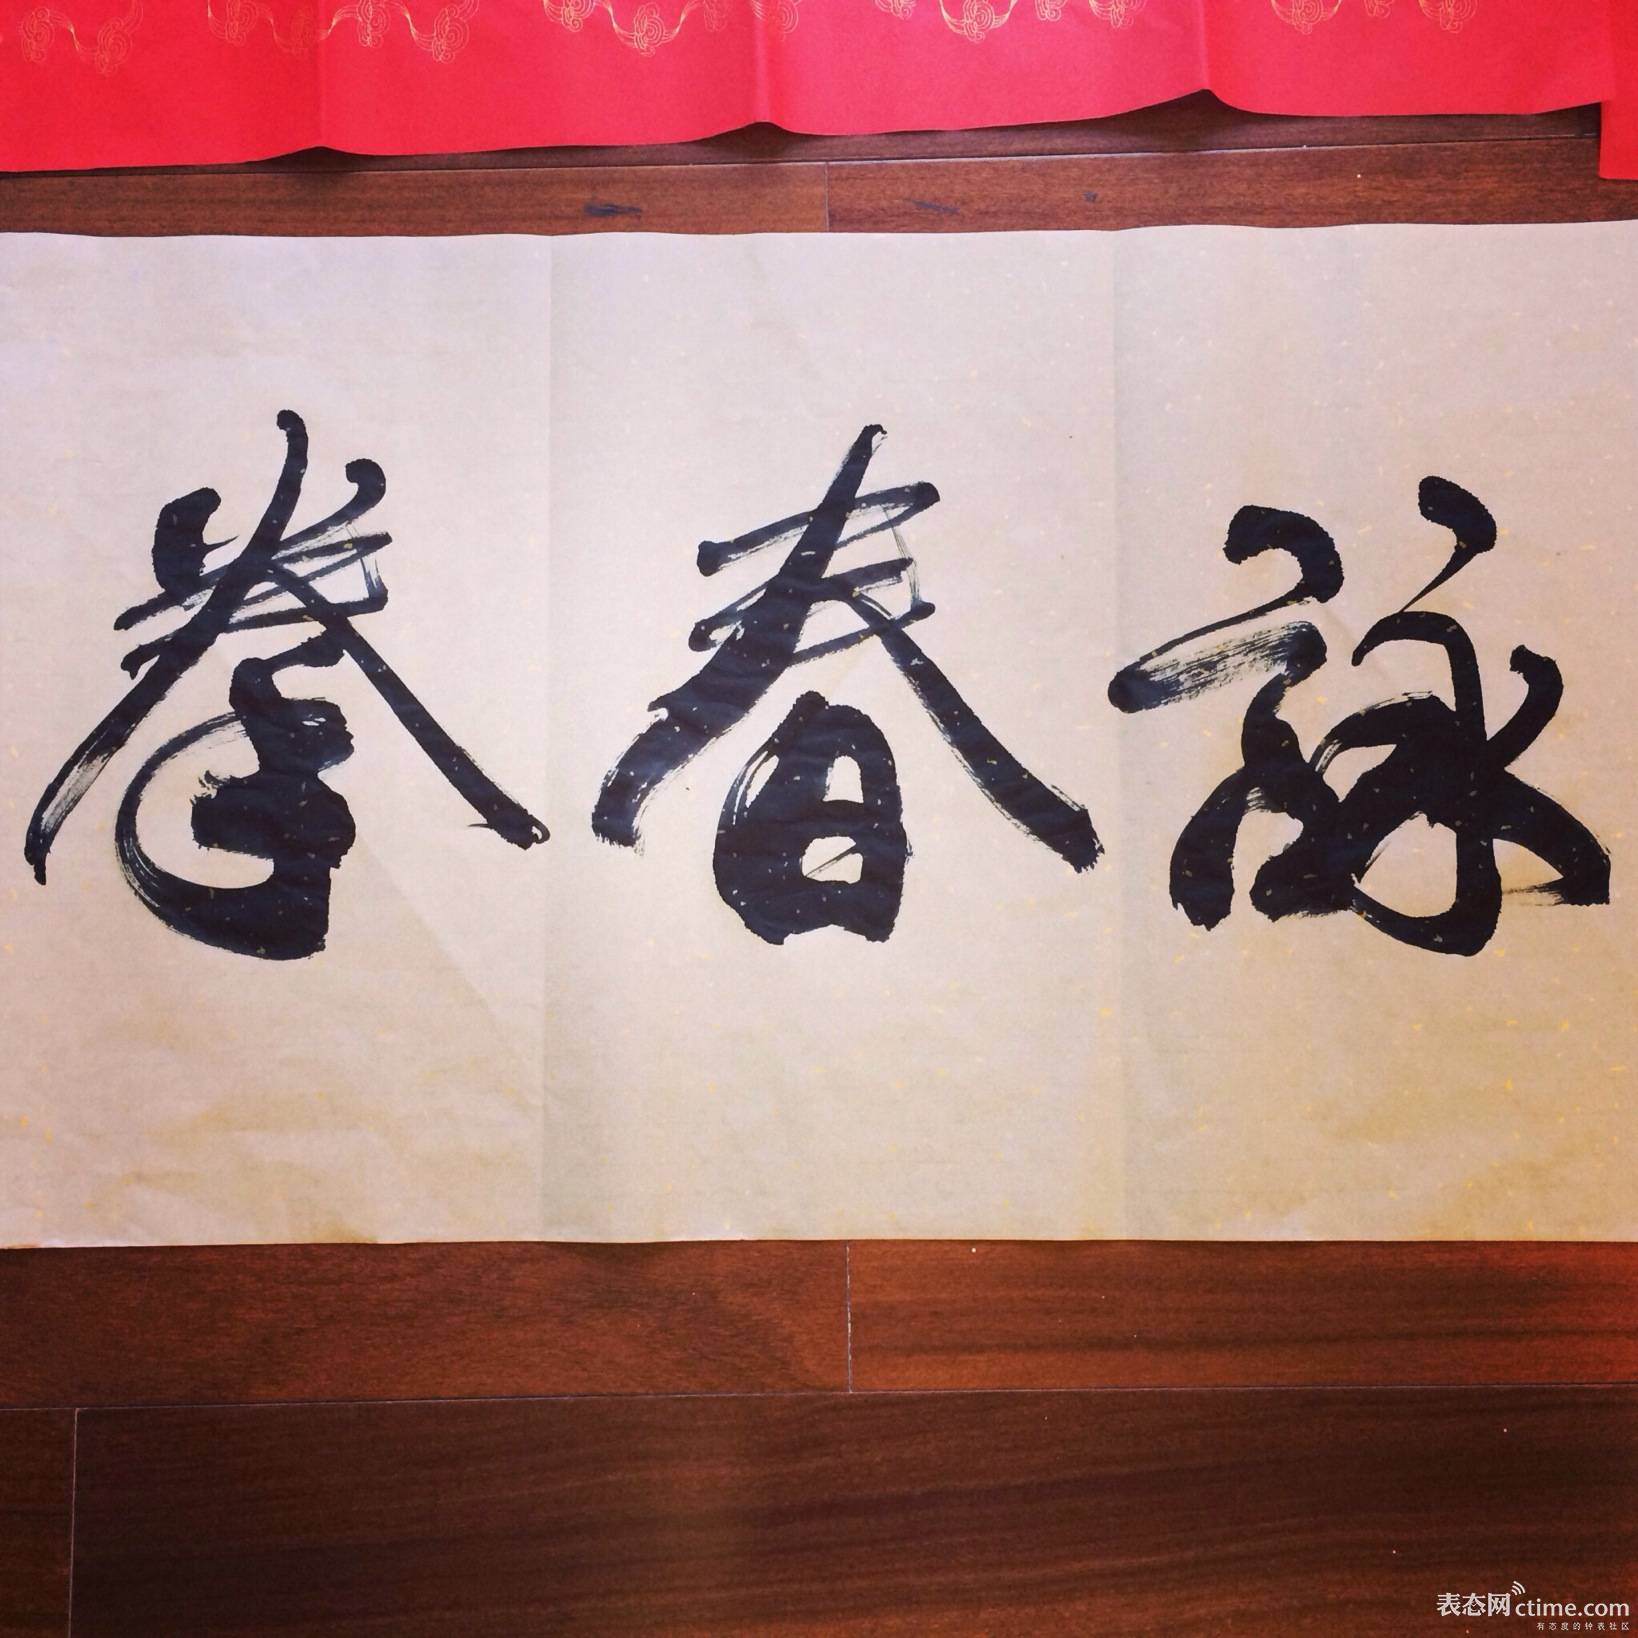 詠春拳
表态网 ctime.com
有态度的钟表社区